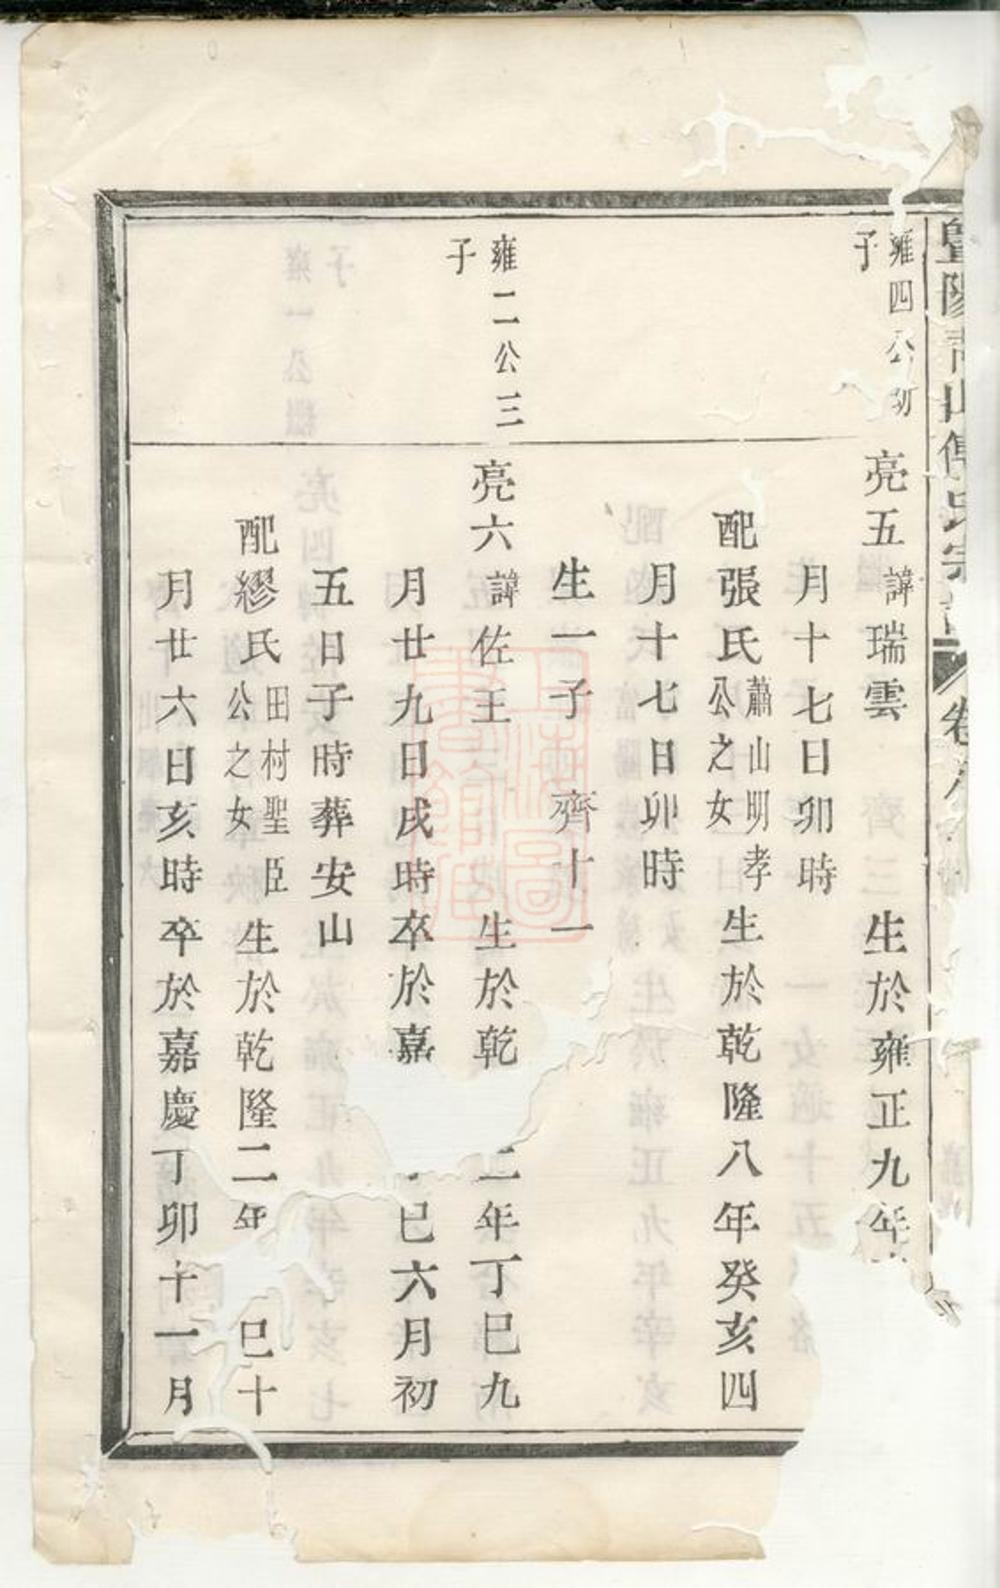 暨陽青山傅氏宗譜 卷
雍四公
子
亮五 諱瑞雲 生於雍正九年
月十七日卯時
配張氏 蕭山明孝公之女 生於乾隆八年癸亥四
月十七日卯時
生一子 齊十一
雍二公三
子
亮六 諱佐王 生於乾 二年丁巳九
月廿九日戌時卒於嘉 巳六月初
五日子時葬安山
配繆氏 田村聖臣公之女 生於乾隆二年 巳十
月廿六日亥時卒於嘉慶丁卯十一月
上海圖書館藏